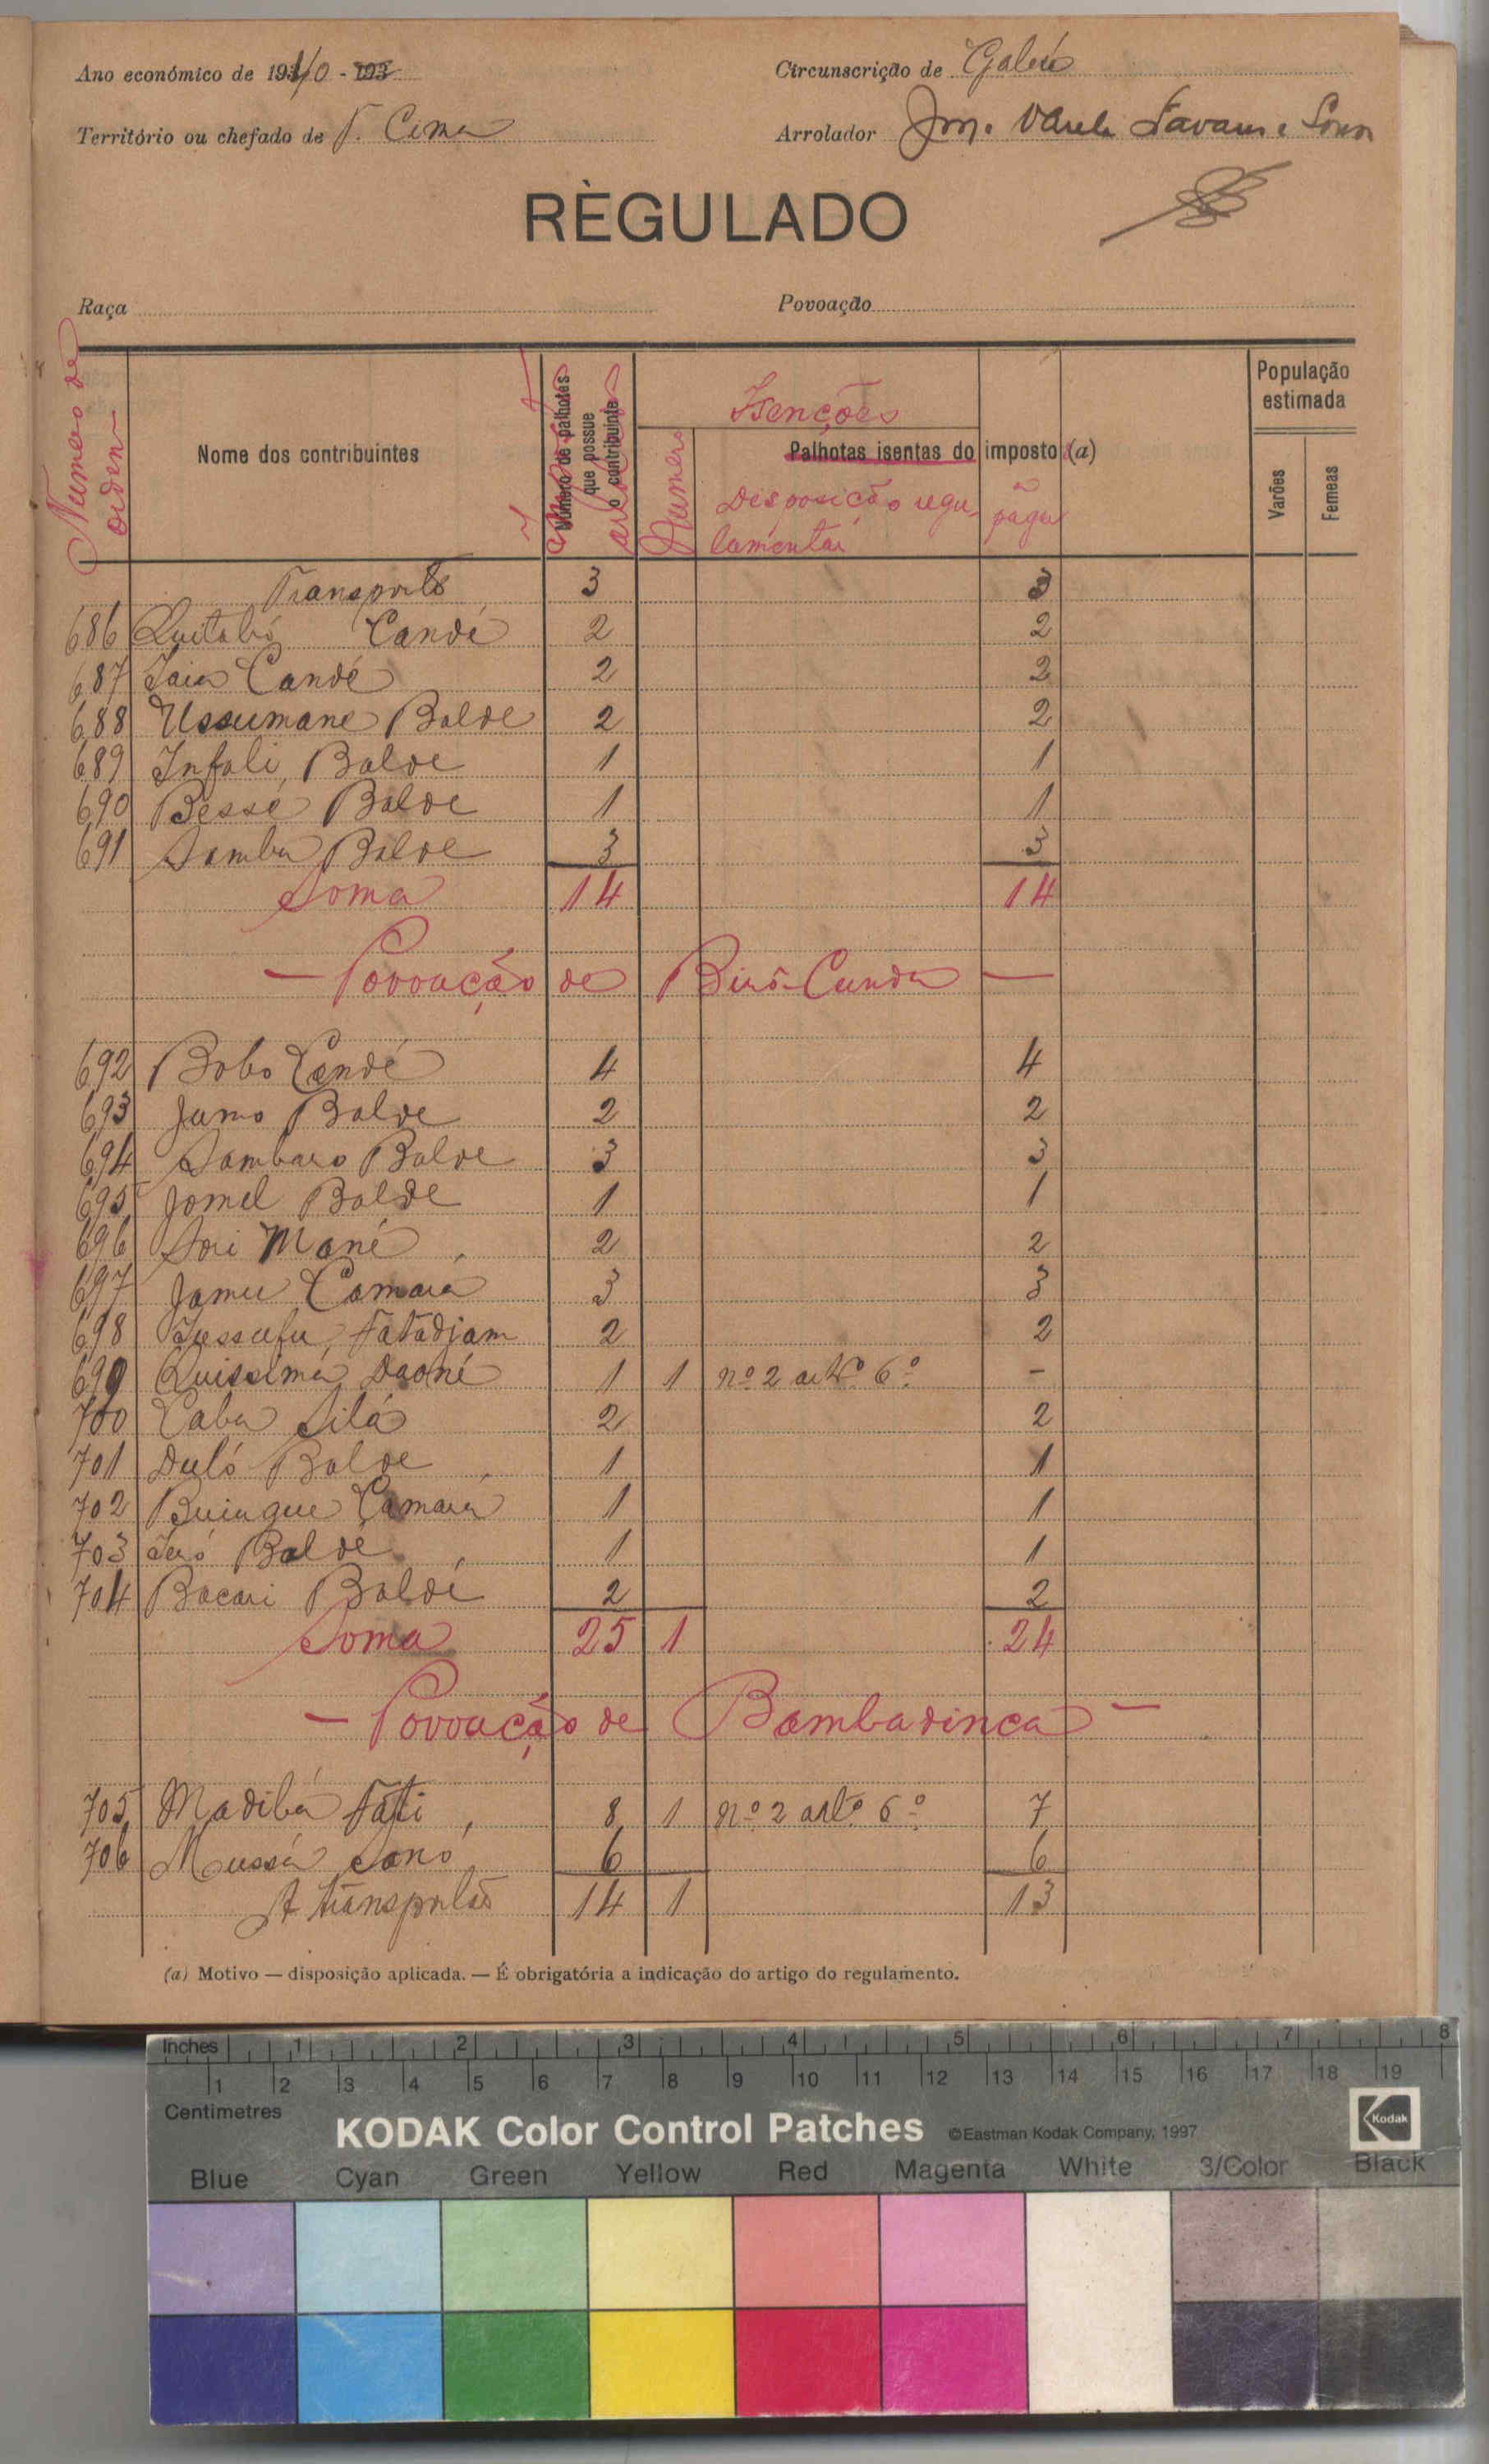 Ano económico de 1940 - 193
Circunscrição de Gabú
Território ou chefado de P. Cima
Arrolador Jorge Varela Tavares e Sousa
RÈGULADO
Raça
Povoação
Numero de ordem
Nome dos contribuintes
Número de palhotes que possue o contribuinte
Isenções
Numero
Palhotas isentas do imposto (a)
Disposição regulamentar
a pagar
População estimada
Varões
Femeas
Transporte 3 3
686 Candé 2 2
687 Candé 2 2
688 Ussumane Balde 2 2
689 Infali Balde 1 1
690 Bessé Balde 1 1
691 Samba Balde 3 3
Soma 14 14
— Povoação de Biró-Cunda —
692 Bobo Candé 4 4
693 Jamo Balde 2 2
694 Sambaro Balde 3 3
695 Jomel Balde 1 1
696 Sori Mané 2 2
697 Camará 3 3
698 Jussufu Fatadjam 2 2
699 Quissima Daomé 1 1 nº 2 artº 6º -
700 Caba Silá 2 2
701 Duló Balde 1 1
702 Camará 1 1
703 Balde 1 1
704 Bacari Baldé 2 2
Soma 25 1 24
— Povoação de Bambadinca —
705 Madibá Fati 8 1 nº 2 artº 6º 7
706 Mussá Sanó 6 6
A transportar 14 1 13
(a) Motivo — disposição aplicada. — É obrigatória a indicação do artigo do regulamento.
Inches 1 2 3 4 5 6 7 8
1 2 3 4 5 6 7 8 9 10 11 12 13 14 15 16 17 18 19
Centimetres
KODAK Color Control Patches ©Eastman Kodak Company, 1997 Kodak
Blue Cyan Green Yellow Red Magenta White 3/Color Black